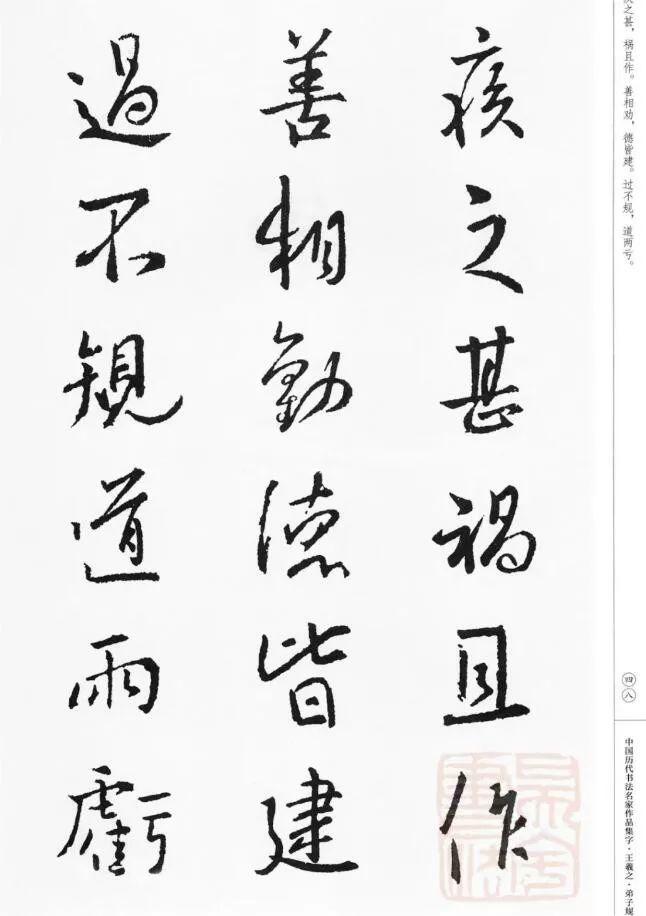 之甚，祸且作。善相劝，德皆建。过不规，道两亏。
四八
中国历代书法名家作品集字·王羲之·弟子规
疾之甚禍且作
善相勸德皆建
過不規道兩虧